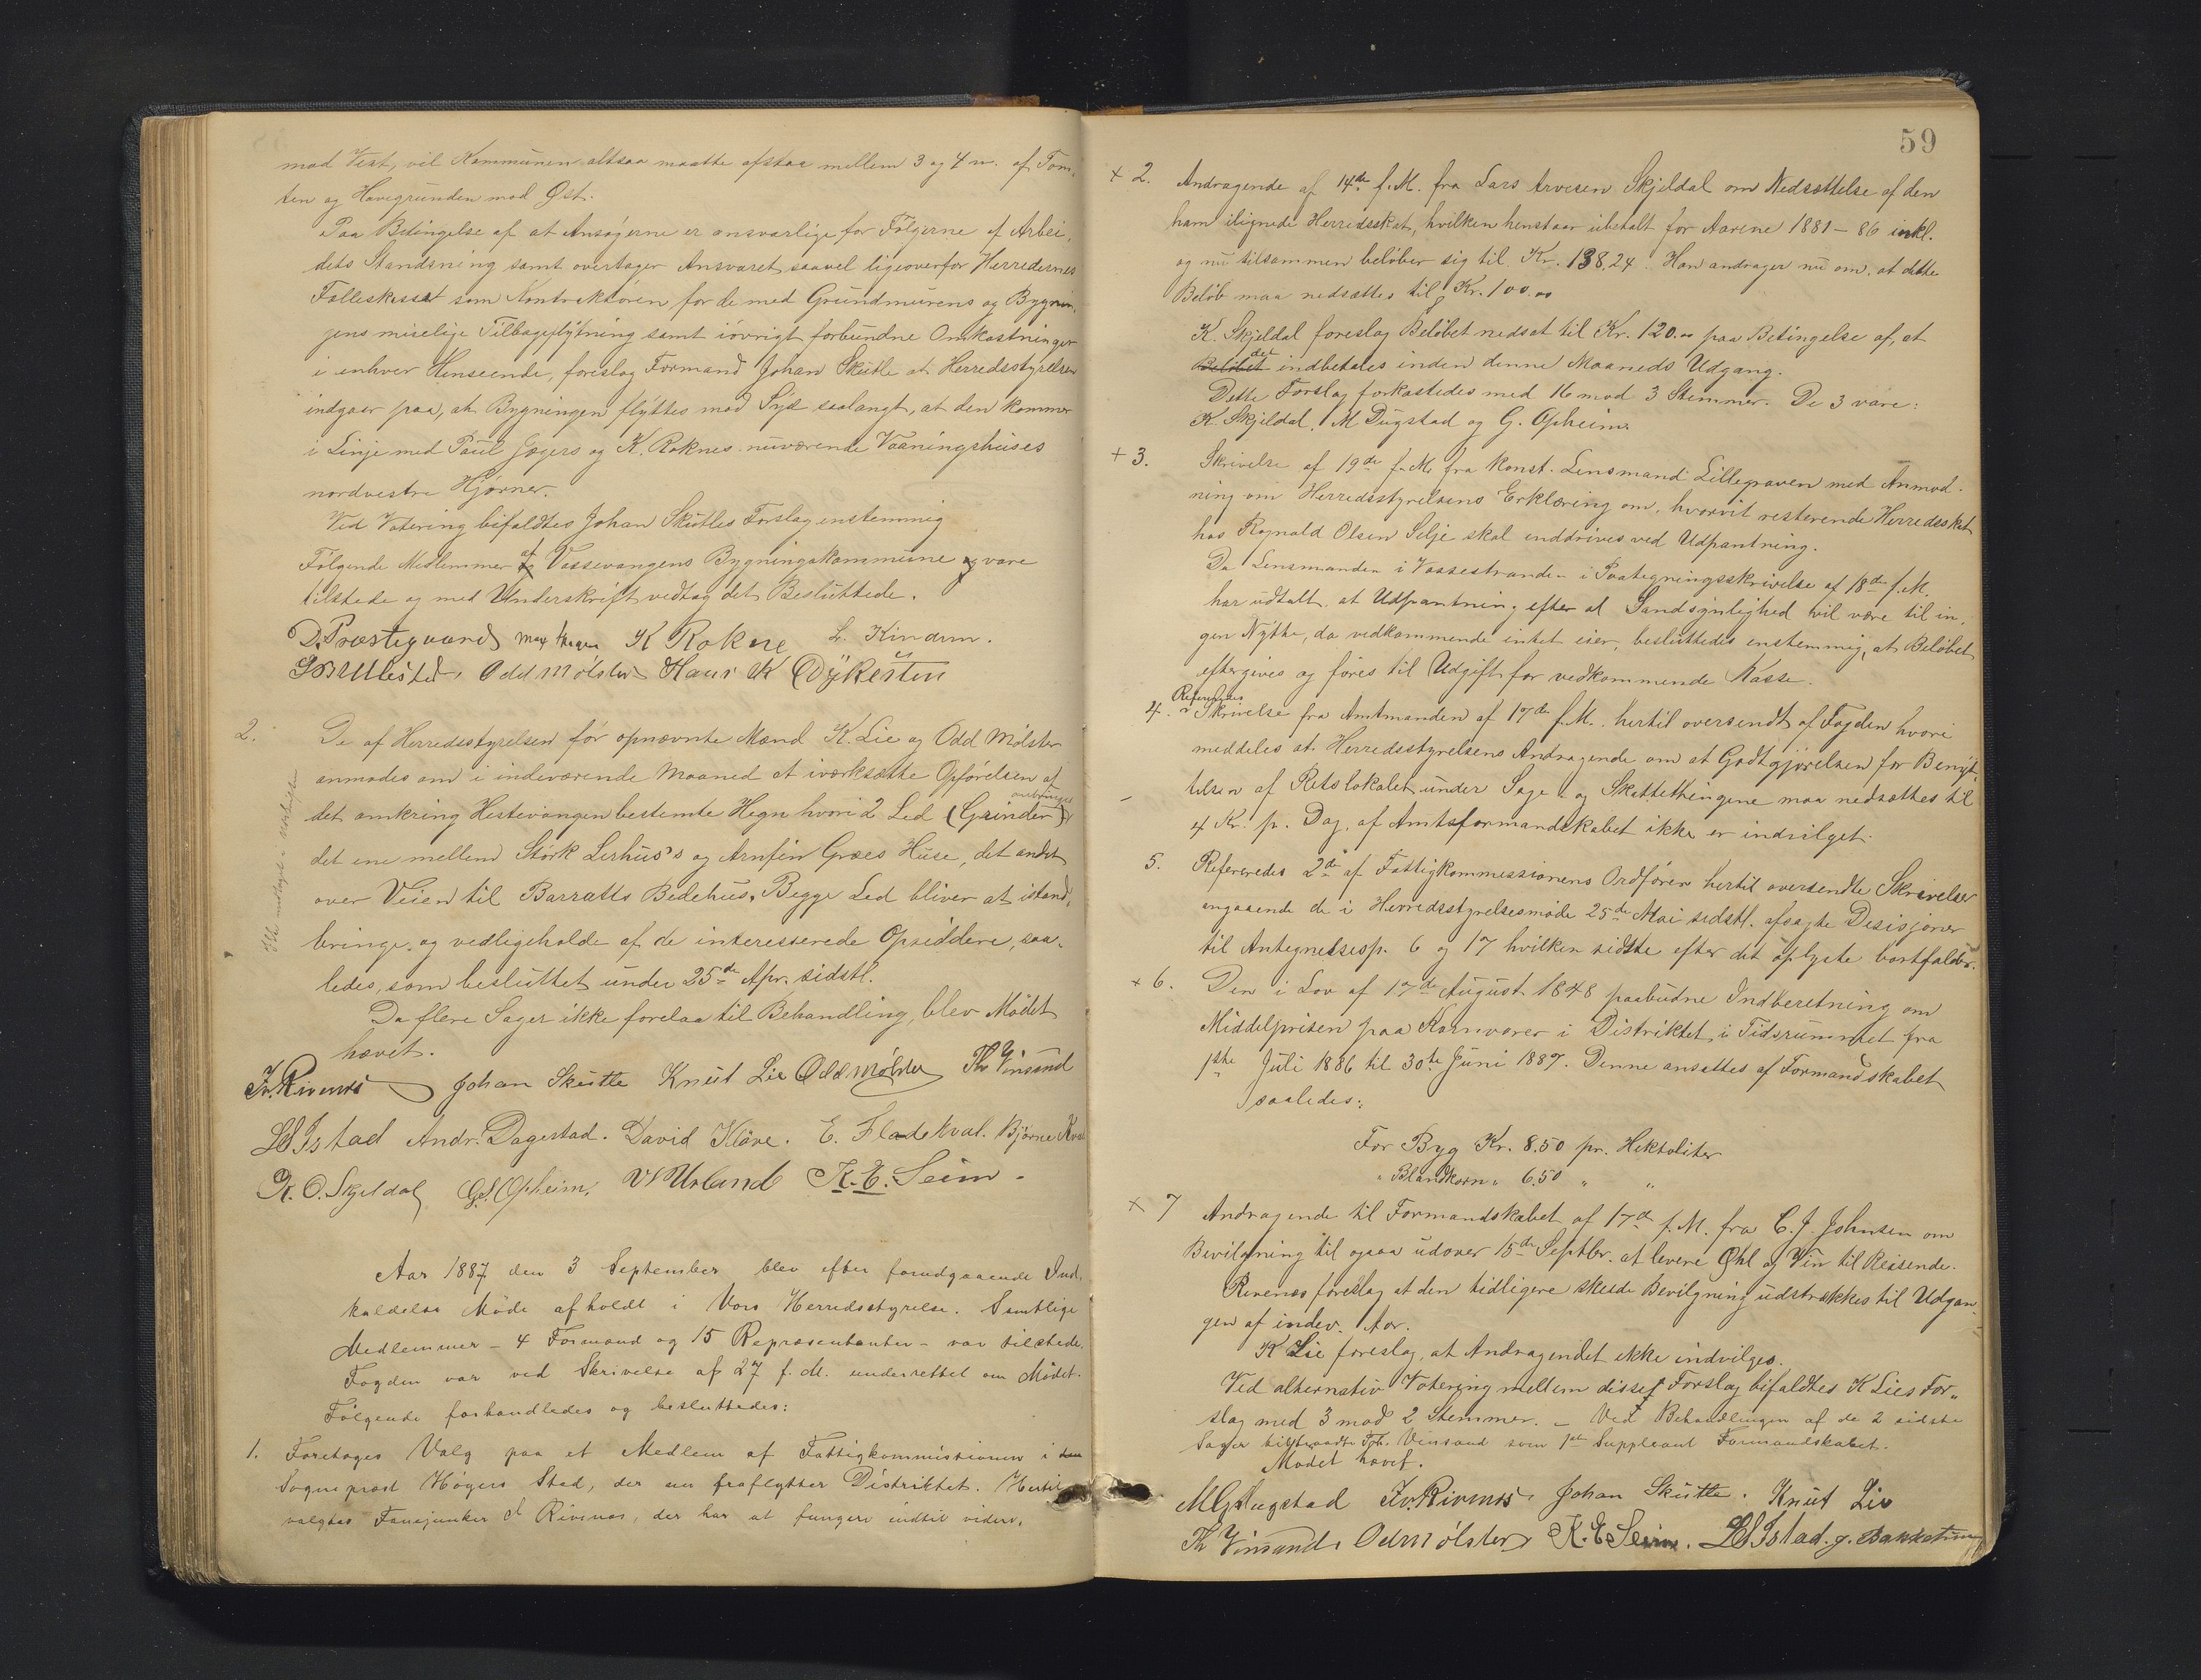 mod Vest, vil Kommunen altsaa maatte afstaa mellem 3 og 4 m. af Tom-
ten og Havegrunden mod Øst.
Paa Betingelse af at Ansøgerne er ansvarlige for Følgerne af Arbei-
dets Standsning samt overtager Ansvaret saavel ligeoverfor Herredernes
Felleskasse som Kontraktøren for de med Grundmurens og Bygnin-
gens Tilbageflytning samt iøvrigt forbundne Omkostninger
i enhver Henseende, foreslog Formand Johan Skutle at Herredsstyrelsen
indgaar paa, at Bygningen flyttes mod Syd saalangt, at den kommer
i Linje med Paul Gjøgers og K. Roknes nuværende Vaaningshuses
nordvestre Hjørner.
Ved Votering bifaldtes Johan Skutles Forslag enstemmig
Følgende Medlemmer af Vossevangens Bygningskommune vare
tilstede og med Underskrift vedtog det Besluttede.
D. Præstegaard K Rokne L. Kindem.
Odd Mølster Hans K Dykesten
2. De af Herredsstyrelsen før opnævnte Mænd K. Lie og Odd Mølster
anmodes om i indeværende Maaned at iværksætte Opførelsen af
det omkring Hestevangen bestemte Hegn hvori 2 Led (Grinder) anbringes
det ene mellem Størk Lerhus's og Arnfin Græes Huse, det andet
over Veien til Barratts Bedehus. Begge Led bliver at istand-
bringe og vedligeholde af de interesserede Opsiddere, saa-
ledes, som besluttet under 25de Apr. sidstl.
Da flere Sager ikke forelaa til Behandling, blev Mødet
hævet.
Iv. Rivenæs Johan Skutle Knut Lie Odd Mølster Th Vinsand
LB Istad Andr. Dagestad. David Kløve. E. Fladekval. Bjørne
K. O. Skjeldal G.S. Opheim, V Urland K. E. Seim.
Aar 1887 den 3 September blev efter forudgaaende Ind-
kaldelse Møde afholdt i Vors Herredsstyrelse. Samtlige
Medlemmer – 4 Formænd og 15 Repræsentanter – var tilstede.
Fogden var ved Skrivelse af 27 f. M. underrettet om Mødet.
Følgende forhandledes og besluttedes:
1. Foretoges Valg paa et Medlem af Fattigkommissionen i
Sogneprest Høyers Sted, der nu fraflytter Distriktet. Hertil
valgtes Fanejunker I Rivenæs, der har at fungere indtil videre.
59
+ 2. Andragende af 14de f. M. fra Lars Arvesen Skjeldal om Nedsættelse af den
ham ilignede Herredsskat, hvilken henstaar ubetalt for Aarene 1881–86 inkl.
og nu tilsammen beløber sig til Kr. 138,24. Han andrager nu om, at dette
Beløb maa nedsættes til Kr. 100.00
K. Skjeldal foreslog Beløbet nedsat til Kr. 120.00 paa Betingelse af, at
Beløbet det indbetales inden denne Maaneds Udgang.
Dette Forslag forkastedes med 16 mod 3 Stemmer. De 3 vare:
K. Skjeldal, M Dugstad og G. Opheim.
+ 3. Skrivelse af 19de f. M. fra konst. Lensmand Lillegraven med Anmod-
ning om Herredsstyrelsens Erklæring om, hvorvit resterende Herredsskat
hos Rognald Olsen Selje skal inddrives ved Udpantning.
Da Lensmanden i Vossestranden i Paategningsskrivelse af 18de f. M.
har udtalt, at Udpantning efter al Sandsynlighed vil være til in-
gen Nytte, da vedkommende intet eier, besluttedes enstemmig, at Beløbet
eftergives og føres til Udgift for vedkommende Kasse.
4. Refereredes Skrivelse fra Amtmanden af 17de f. M. hertil oversendt af Fogden hvori
meddeles at Herredsstyrelsens Andragende om at Godtgjørelsen for Benyt-
telsen af Retslokalet under Sage- og Skattethingene maa nedsættes til
4 Kr. p. Dag, af Amtsformandskabet ikke er indvilget.
5. Refereredes 2de af Fattigkommissionens Ordfører hertil oversendte Skrivelser
angaaende de i Herredsstyrelsesmøde 25de Mai sidstl. afsagte Desisjoner
til Antegnelsesp. 6 og 17 hvilken sidste efter det oplyste bortfalder.
+ 6. Den i Lov af 17de August 1848 paabudne Indberetning om
Middelprisen paa Kornvarer i Distriktet i Tidsrummet fra
1ste Juli 1886 til 30te Juni 1887. Denne ansattes af Formandskabet
saaledes:
For Byg Kr. 8.50 pr. Hektoliter
" Blandkorn " 6.50 " "
+ 7 Andragende til Formandskabet af 17de f. M. fra C. J. Johnsen om
Bevilgning til ogsaa udover 15de Septbr. at levere Øhl og Vin til Reisende.
Rivenæs foreslog at den tidligere skeede Bevilgning udstrækkes til Udgan-
gen af indev. Aar.
K Lie foreslog, at Andragendet ikke indvilges.
Ved alternativ Votering mellem disse Forslag bifaldtes K Lies For-
slag med 3 mod 2 Stemmer. – Ved Behandlingen af de 2 sidste
Sager tiltraadte Th. Vinsand som 1ste Suppleant Formandskabet.
Mødet hævet.
M G Dugstad Iv. Rivenæs, Johan Skutle. Knut Lie
Th Vinsand Odd Mølster K. E Seim. LB Istad.